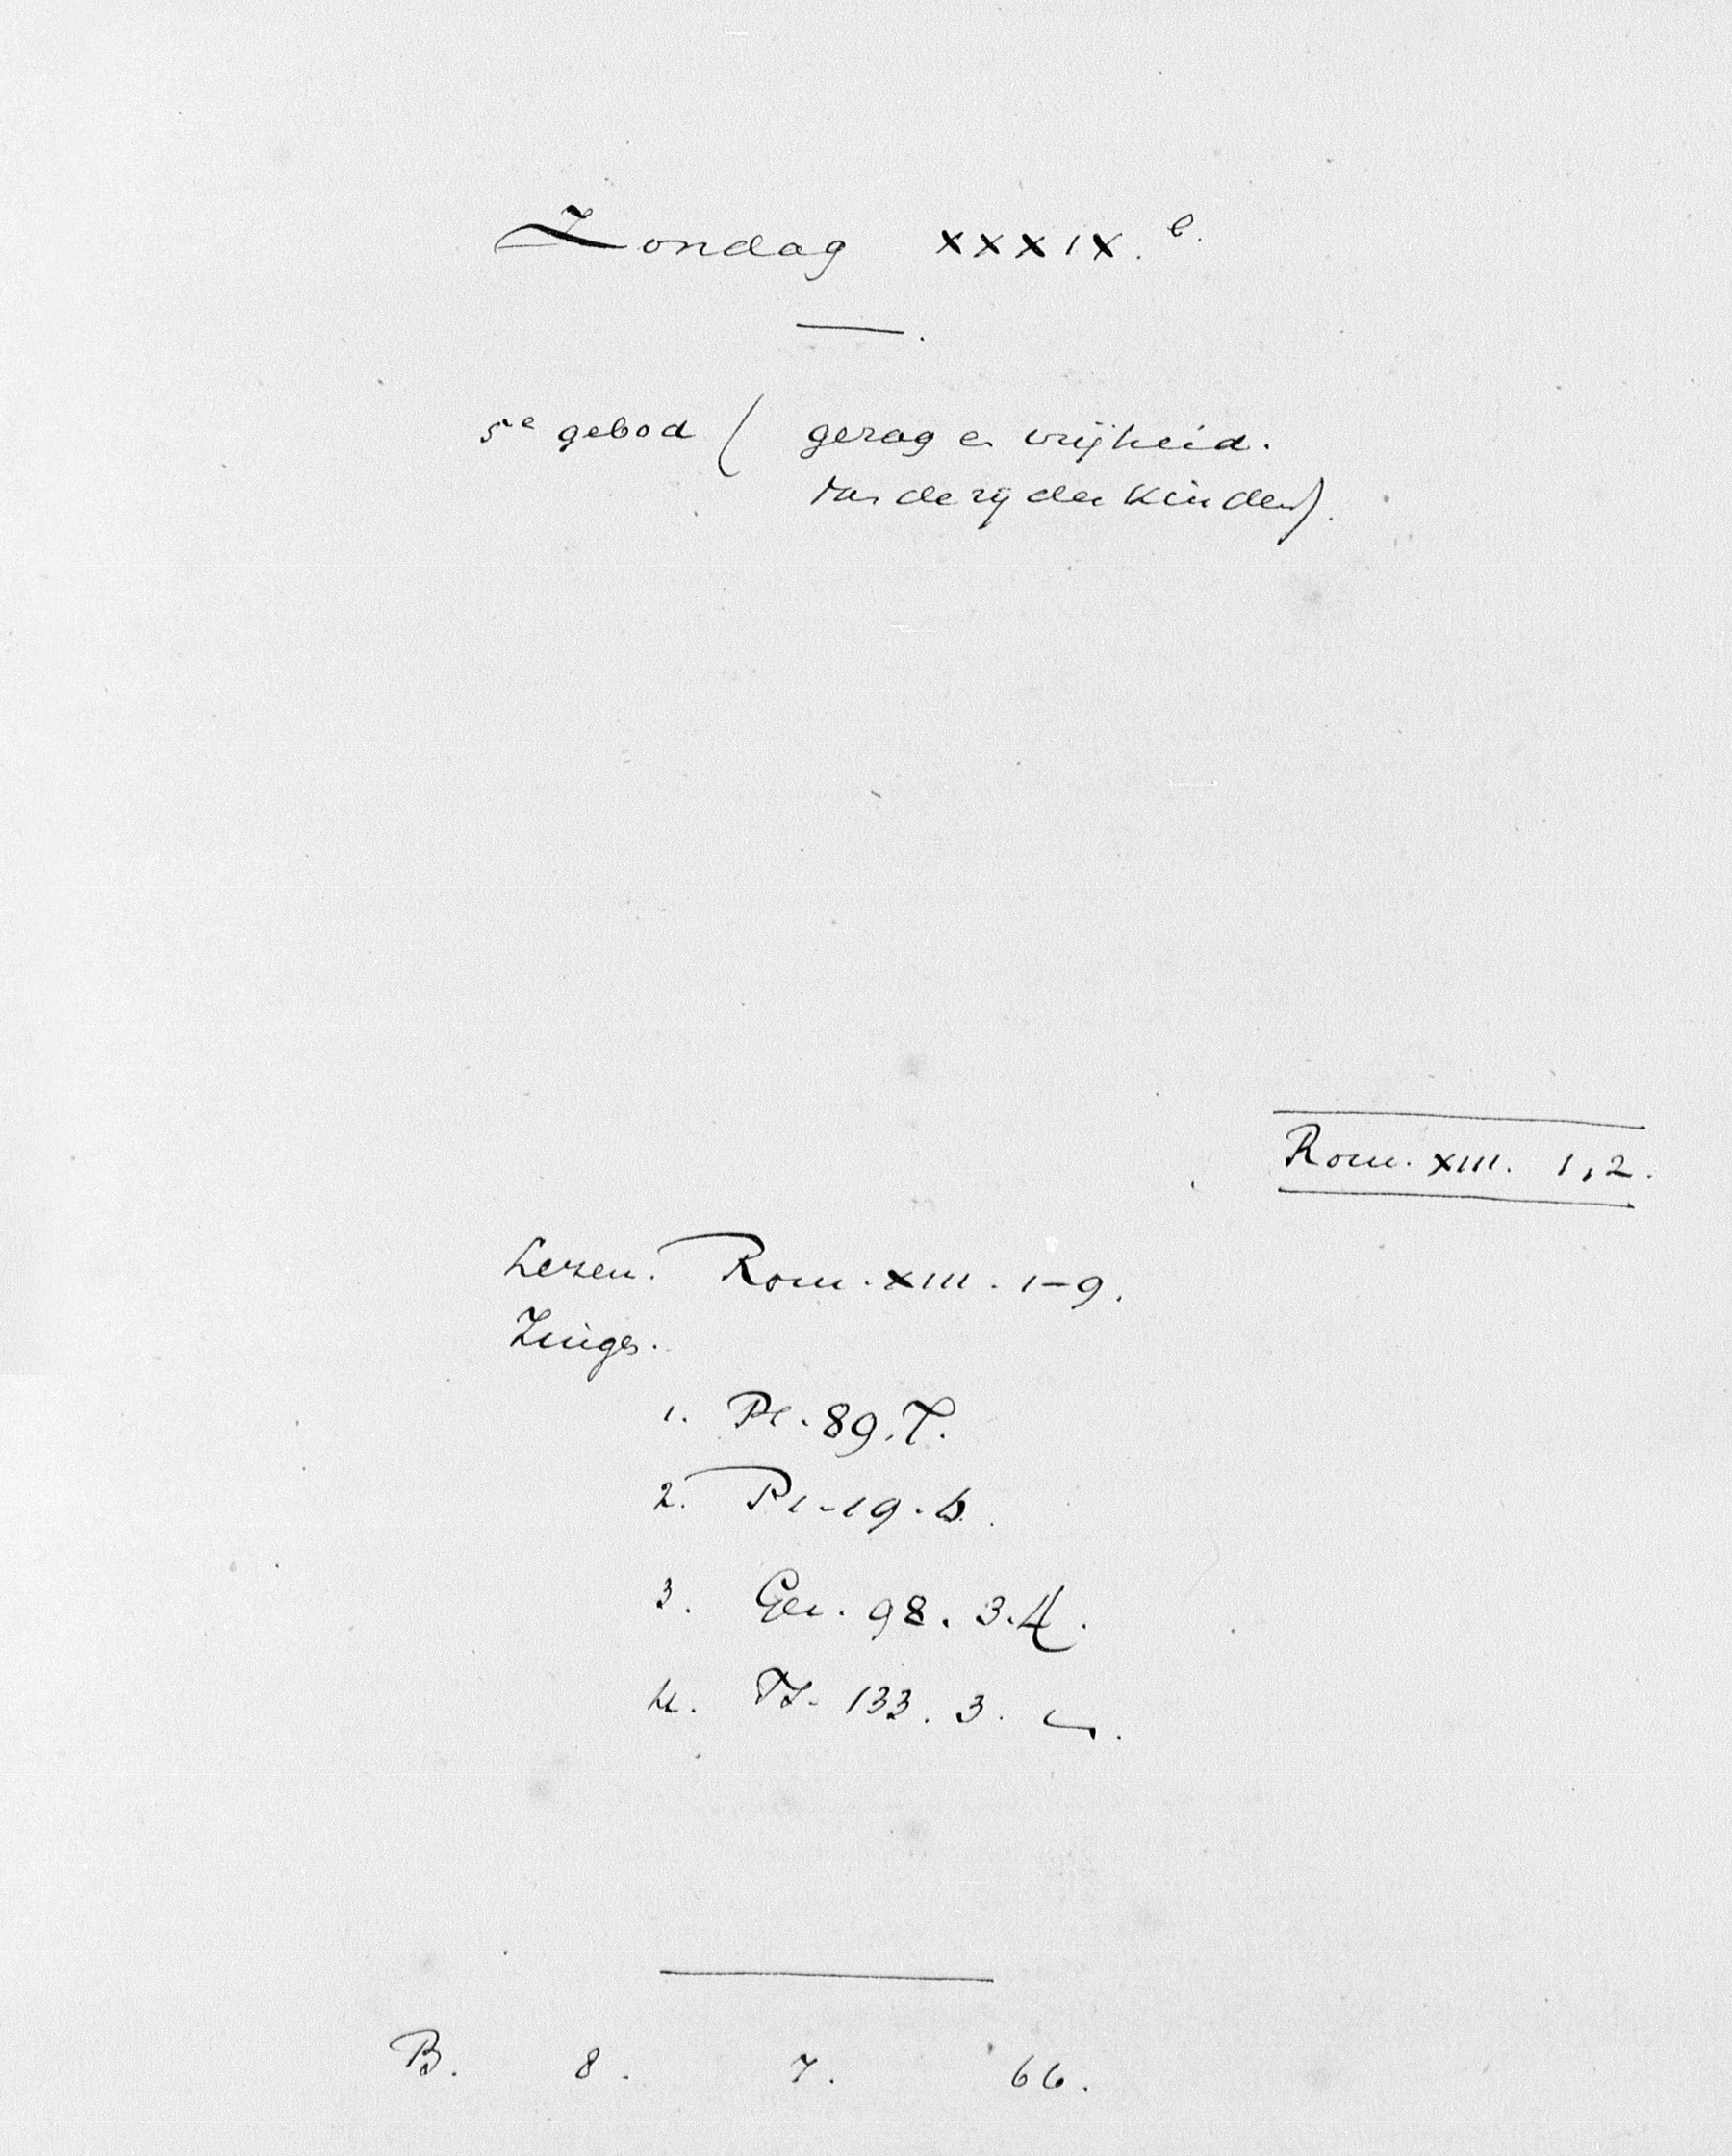 Zondag XXXIX. b.
5e gebod ( gezag en vrijheid.
van de zij der Kinderen).
Rom. XIII. 1,2.
Lezen. Rom. XIII. 1-9.
Zingen.
1. Ps. 89. 7.
2. Ps. 19. 6.
3. Gez. 98. 3. 4.
4. Ps. 133. 3.
B. 8. 7. 66.